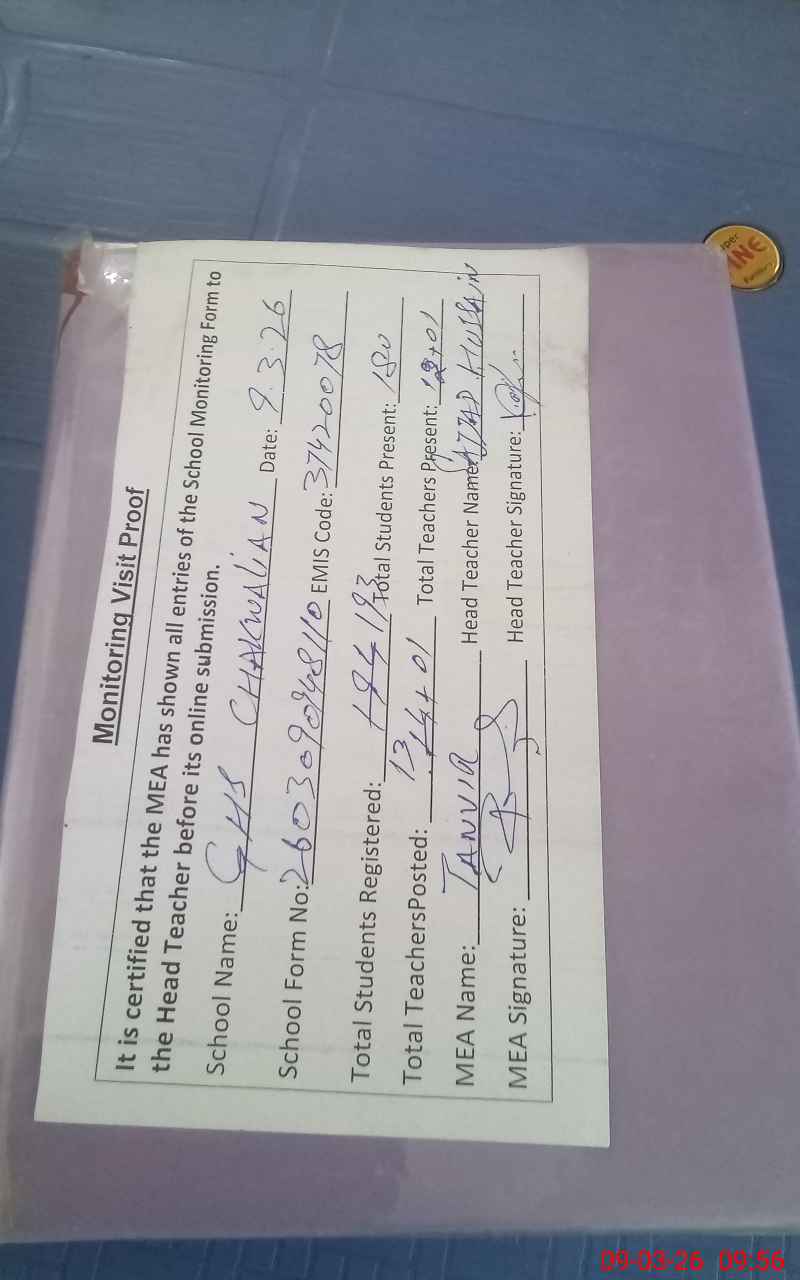 Monitoring Visit Proof
It is certified that the MEA has shown all entries of the School Monitoring Form to
the Head Teacher before its online submission.
School Name: GHS CHAKWALIAN Date: 9.3.26
School Form No: 260309048110 EMIS Code: 37420078
Total Students Registered: 194 193 Total Students Present: 180
Total TeachersPosted: 13 14+01 Total Teachers Present: +01
MEA Name: TANVIR Head Teacher Name: SAJJAD HUSSAIN
MEA Signature: Head Teacher Signature:
09-03-26 09:56